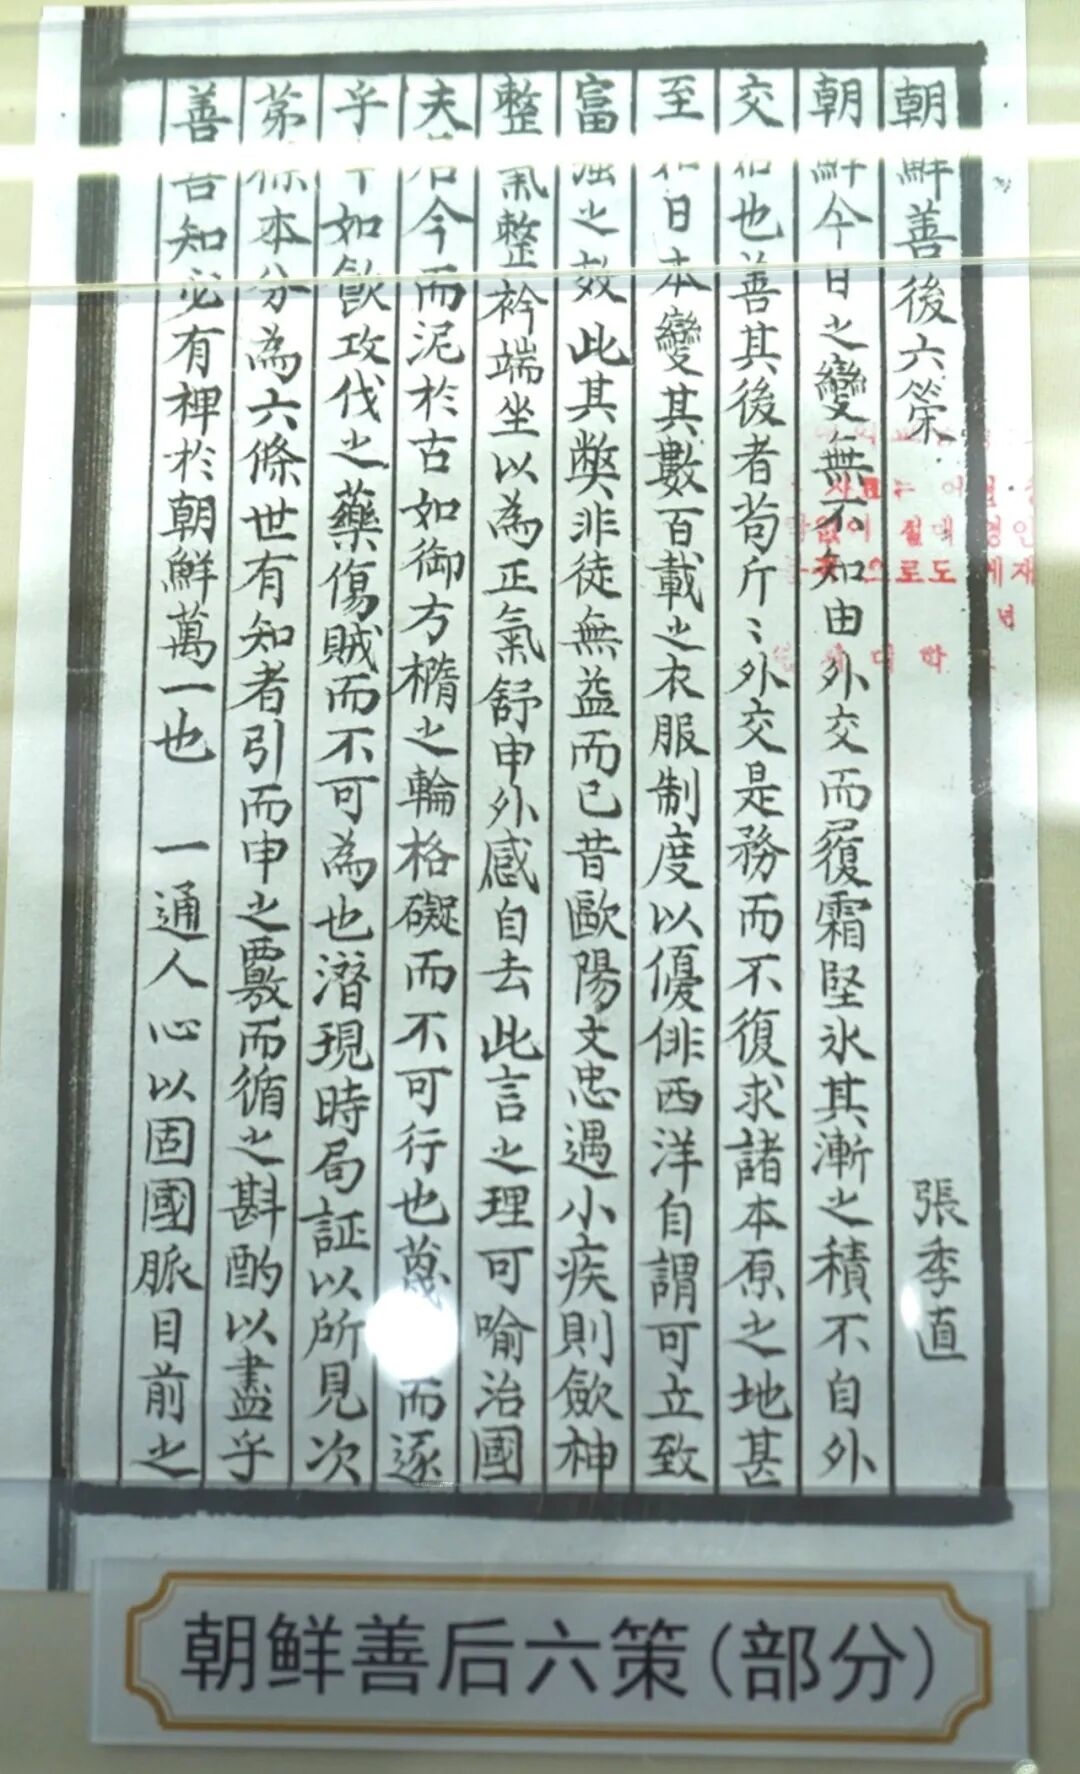 朝鮮善後六策 張季直
朝鮮今日之變無不知由外交而履霜堅氷其漸之積不自外
交始也善其後者苟斤〻外交是務而不復求諸本原之地甚
至和日本變其數百載之衣服制度以優俳西洋自謂可立致
富强之效此其弊非徒無益而已昔歐陽文忠遇小疾則斂神
整氣整衿端坐以為正氣舒申外感自去此言之理可喻治國
夫居今而泥於古如御方橢之輪格礙而不可行也蔑 而逐
乎 如飲攻伐之藥傷賊而不可為也潛現時局証以所見次
苐條本分為六條世有知者引而申之覈而循之斟酌以盡乎
善吾知必有裨於朝鮮萬一也 一通人心以固國脈目前之
朝鲜善后六策(部分)